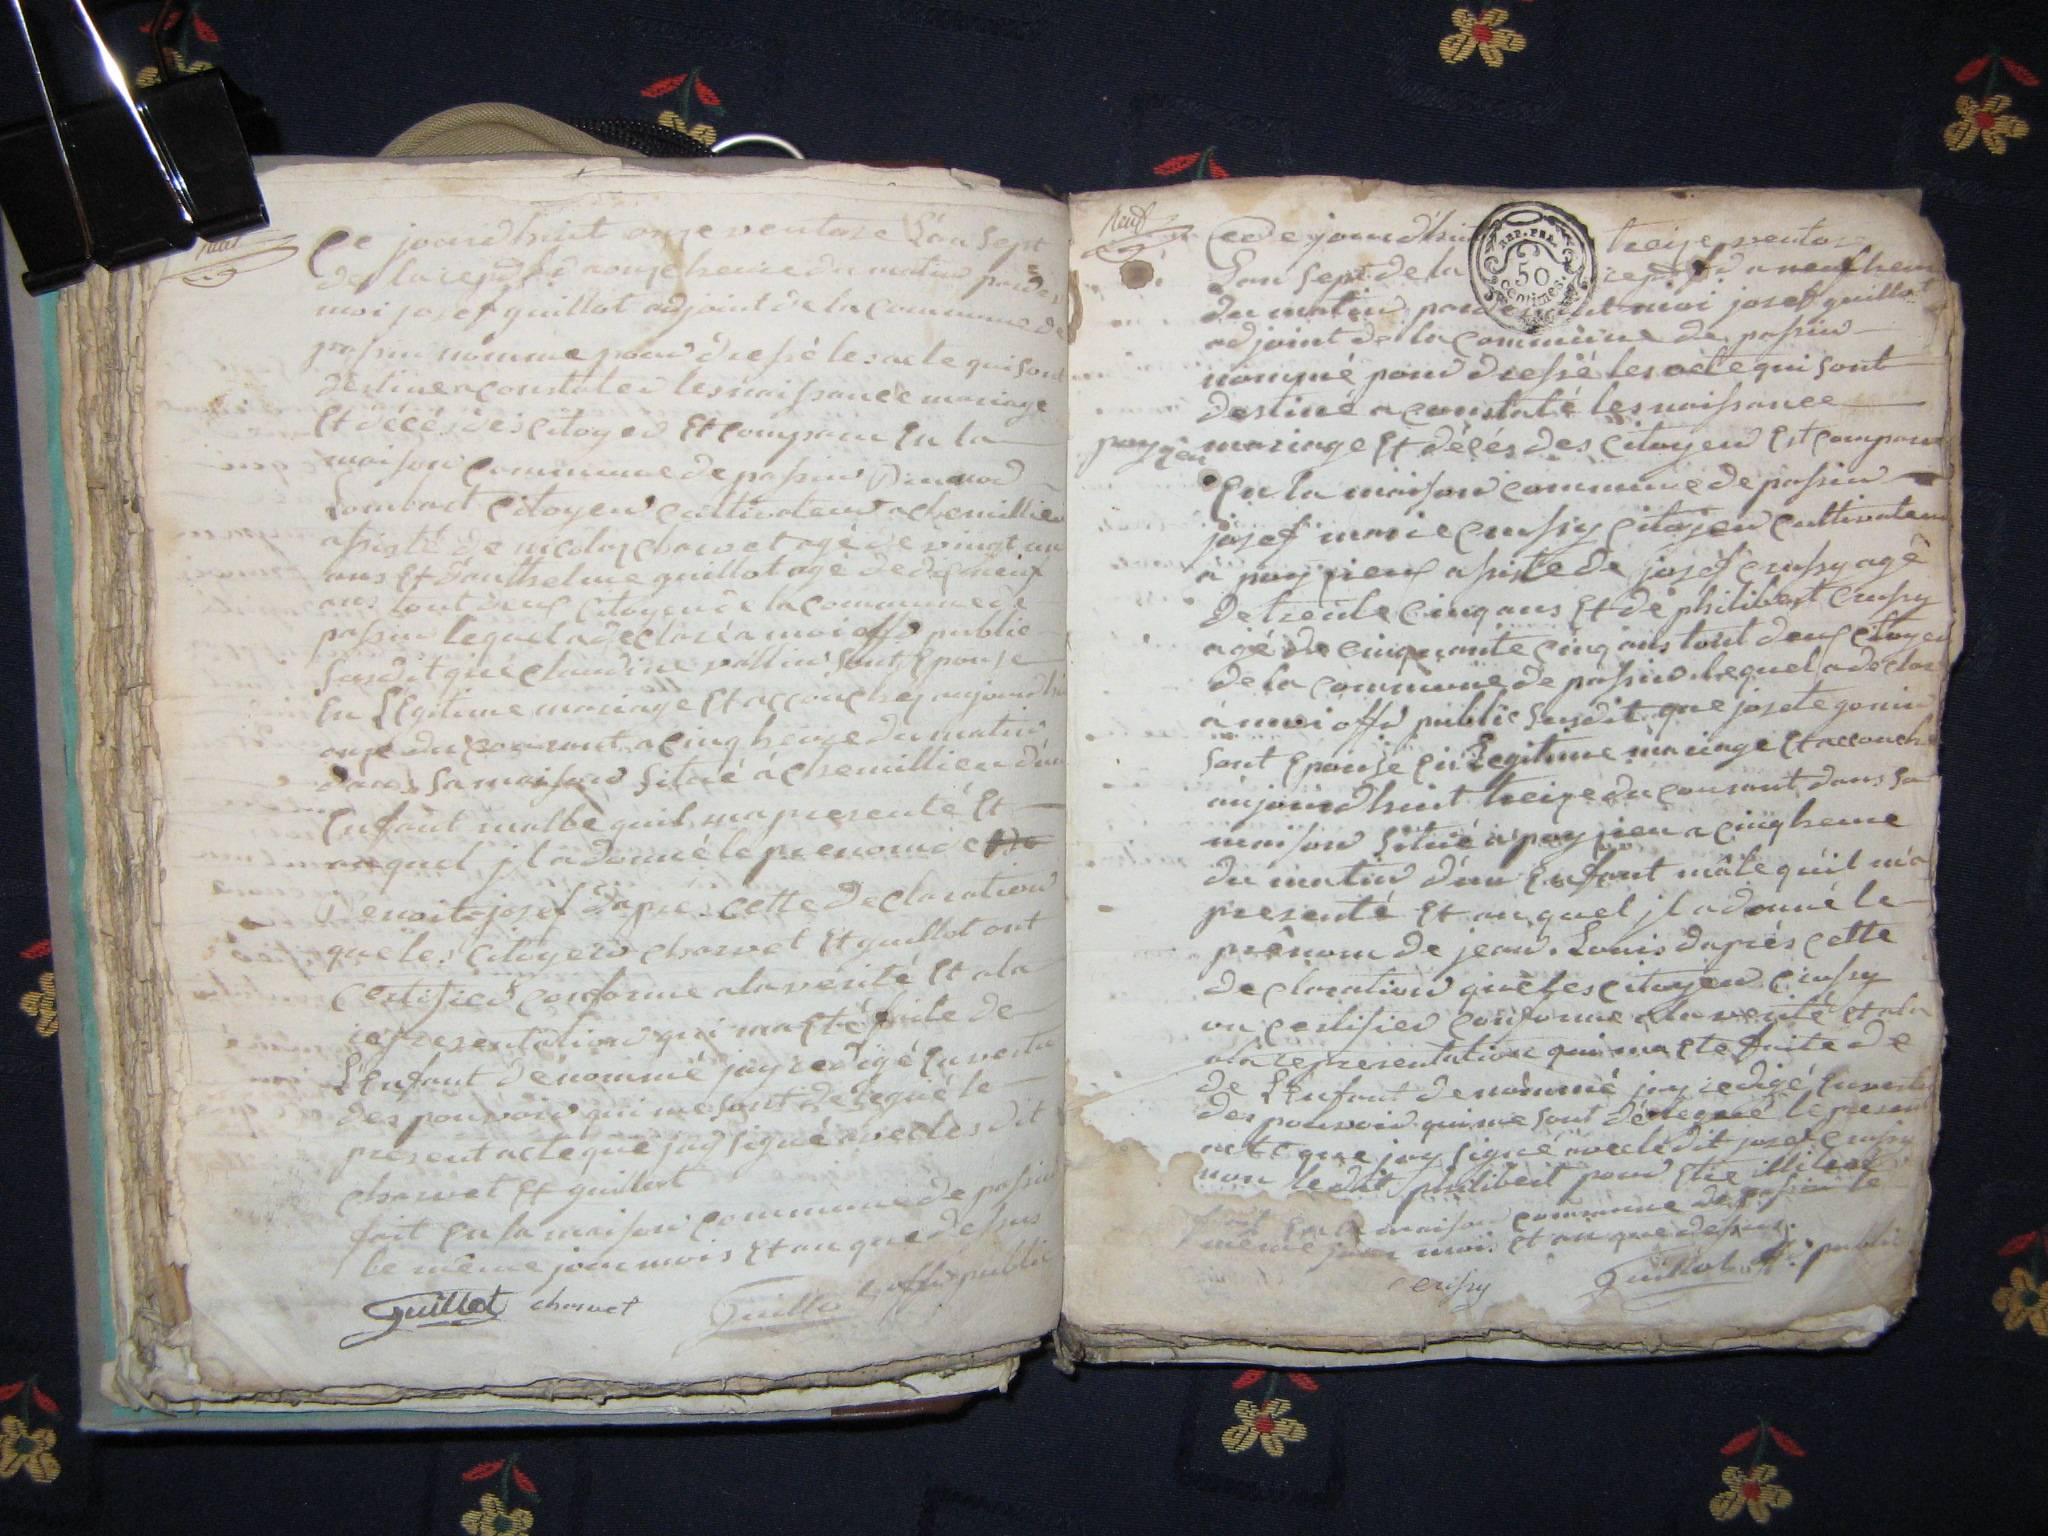 huit
Ce jourdhuit onze ventose L'an Sept
de la repub a onze heure du matin par de
moi josef guillot adjoint de la Commune de
passin nommé pour dressé les acte qui sont
destiner a constater les naissance mariage
Et décés des citoyen Et comparu En la
maison Commune de passin
Lombart citoyen cultivateur a chemillieu
assisté de nicolas charvet agé de vingt un
ans Et d'anthelme guillot agé de dix neuf
ans tout deux citoyen de la commune de
passin lequel a declaré a moi offr public
Susdit que claudine vallin sont Epouse
En Légitime mariage Et accouchez aujourdhui
onze du courant a cinq heure du matin
dans sa maison Situé a chemillieu d'un
Enfant malle quil ma presenté Et
auquel jl a donné le prenom de
Benoit josef daprès cette declaration
que les Citoyen charvet Et guillot ont
Certifier conforme a la verité Et a la
representation qui ma Eté faite de
L'enfant dénommé jay redigé En vertu
des pouvoir qui me sont delegué le
present acte que jay signé avec les dit
charvet Et guillot
fait En la maison commune de passin
le même jour mois Et an que dessus
Guillot charvet Guillot offr public
Neuf
Cede jourdhui treize ventose
Lan Sept de la repub a neuf heure
du matin par devant moi josef guillot
adjoint de la commune de passin
nommé pour dressé les acte qui sont
destiné a constaté les naissance
mariage Et décés des citoyen Est comparu
En la maison commune de passin
REP. FRA.
50
centimes
josef marie crussy citoyen cultivateur
a assisté de josef crussy agé
De trente cinq ans Et de philibert crussy
agé de cinquante cinq ans tout deux citoyen
de la commune de passin lequel a declaré
a moi offr public Susdit que josete gonin
sont Epouse En Legitime mariage Et accouché
aujourdhuit treize du courant dans sa
maison Situé a a cinq heure
du matin d'un Enfant mâle qu'il m'a
presenté Et au quel jl a donné le
prénom de jean Louis daprès cette
declaration que les citoyen crussy
on certifier conforme a la verité Et a la
a la representation qui ma Ete faite de
de L'Enfant denommé jay redigé En vertu
des pouvoir qui me sont délegué le present
acte que jay signé avec le dit josef crussy
non le dit philibert pour Etre illiteré
fait En la maison commune de passin le
même jour mois Et an que dessus
crussy Guillot off. public